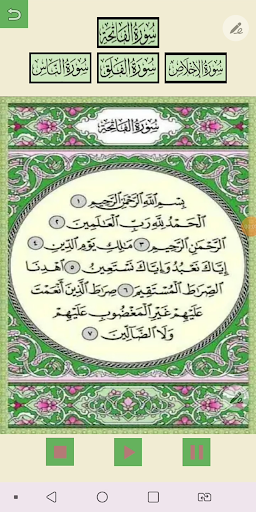 سورة الفاتحة
سورة الإخلاص
سورة الفلق
سورة الناس
سورة الفاتحة
بِسْمِ اللَّهِ الرَّحْمَٰنِ الرَّحِيمِ ١
الْحَمْدُ لِلَّهِ رَبِّ الْعَالَمِينَ ٢
الرَّحْمَٰنِ الرَّحِيمِ ٣ مَالِكِ يَوْمِ الدِّينِ ٤
إِيَّاكَ نَعْبُدُ وَإِيَّاكَ نَسْتَعِينُ ٥ اهْدِنَا
الصِّرَاطَ الْمُسْتَقِيمَ ٦ صِرَاطَ الَّذِينَ أَنْعَمْتَ
عَلَيْهِمْ غَيْرِ الْمَغْضُوبِ عَلَيْهِمْ
وَلَا الضَّالِّينَ ٧